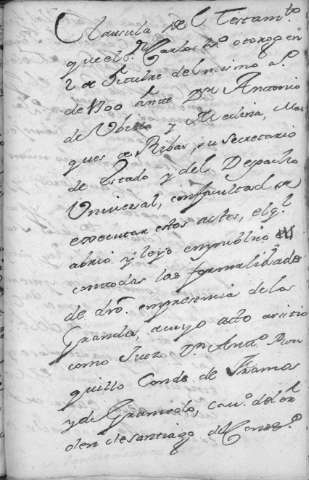 Clausula del Testam.to
que el S.r Carlos 2.o otorgo en
2 de Octubre del mismo a.o
de 1700 Ante D.n Antonio
de Ubilla y Medina, Mar
ques de Ribas, su Secretario
de Estado y del Despacho
Universal, con facultad de
executar estos actos, el q.l
abrio y leyo en publico
con todas las formalidades
de dro. en presencia de los
Grandes, a cuyo acto asistio
como Juez D.n Ant.o Ron
quillo Conde de Framos
y de Gramedo, cau.o del or
den de Santiago de Cons.o